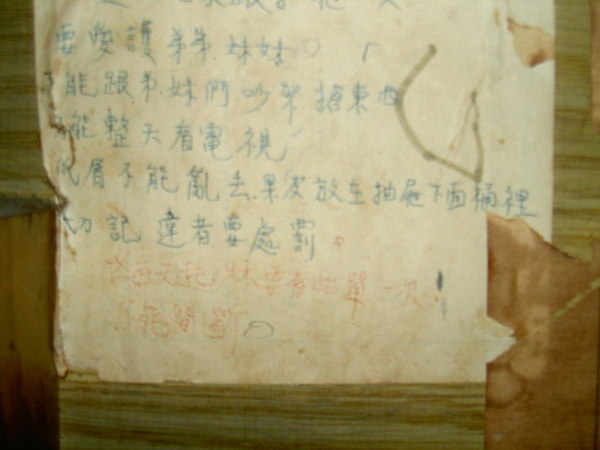 要愛護弟弟妹妹
能跟弟妹們吵架搶東西
能整天看電視
紙屑不能亂丟果皮放在抽屜下面桶裡
切記違者要處罰。
每天起床要看此單一次!
不能間斷